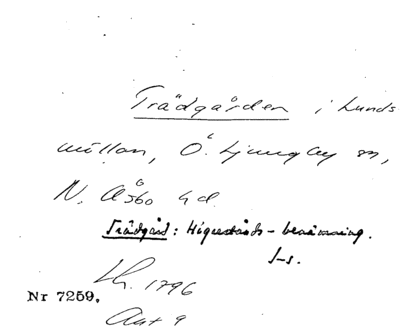 Trädgården i Lunds
möllan, Ö. Ljungby sn,
N. Åsbo hd.
Trädgård: Högreståndsbenämning.
J-s.
Lh. 1796
Nr 7259.
Akt 9